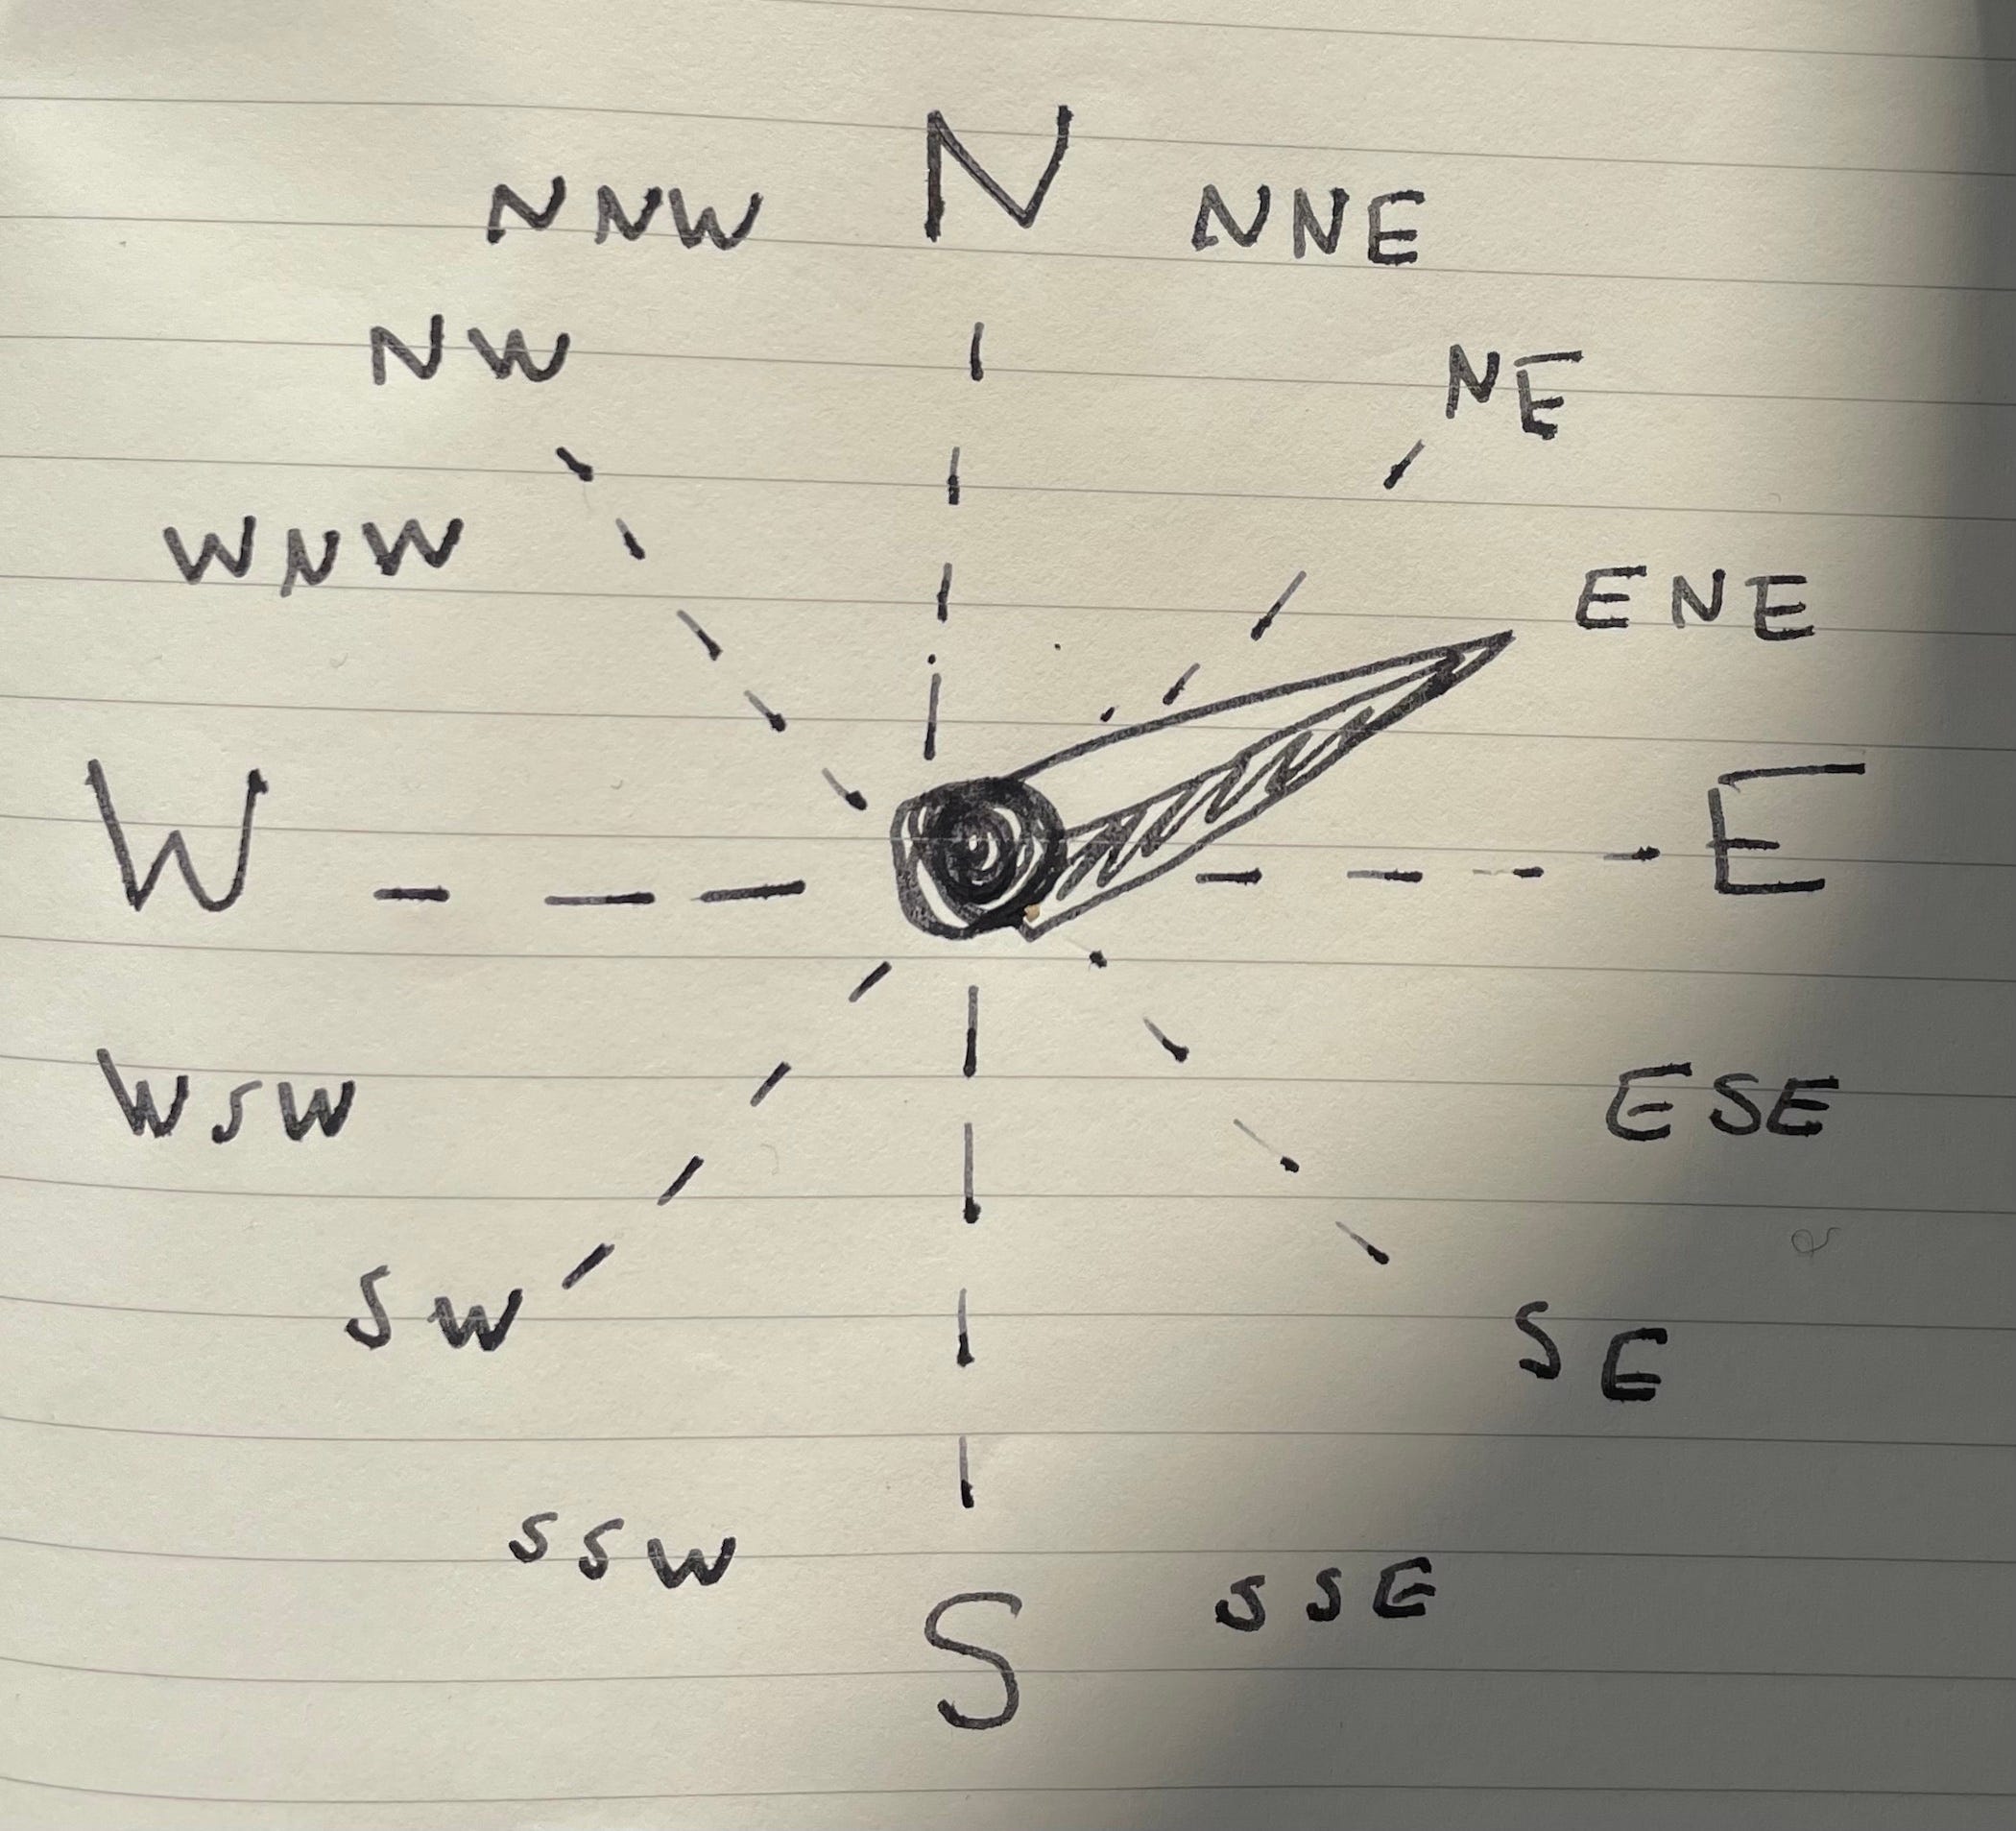 N
NNW NNE
NW NE
WNW ENE
W E
WSW ESE
SW SE
SSW SSE
S